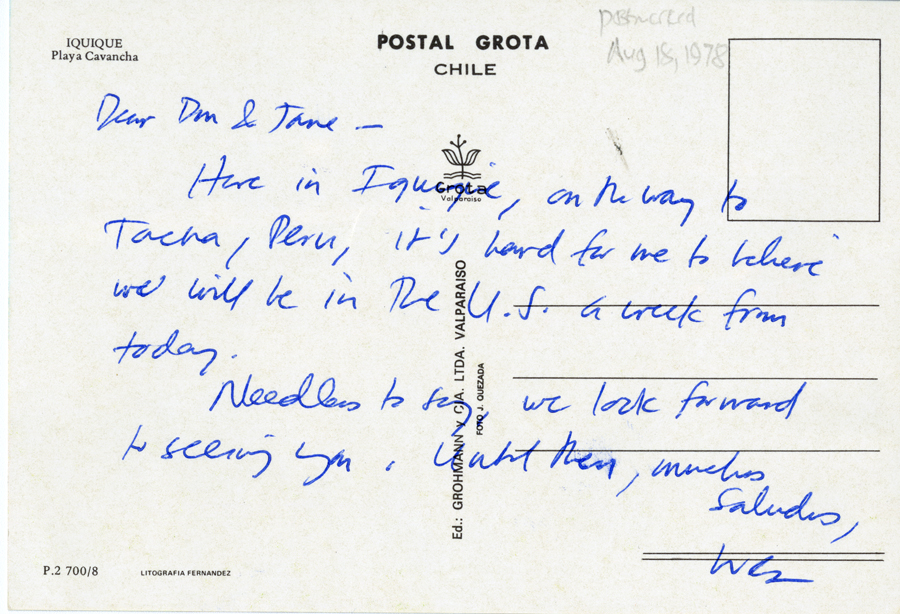 IQUIQUE
Playa Cavancha
POSTAL GROTA
CHILE
postmarked
Aug 18, 1978
Dear Don & Jane —
Here in Iquique, on the way to
Tacna, Peru, it's hard for me to believe
we will be in the U.S. a week from
today.
Needless to say, we look forward
to seeing you. Until then, muchos
saludos,
Wes
Grota
Valparaiso
Ed.: GROHMANN y CIA. LTDA. VALPARAISO
FOTO J. QUEZADA
P.2 700/8
LITOGRAFIA FERNANDEZ